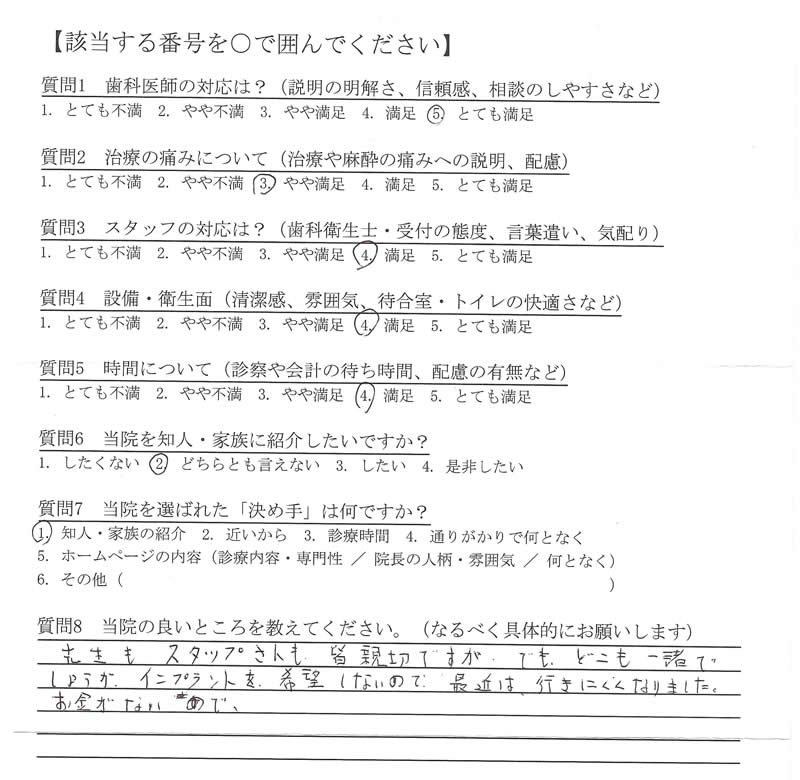 【該当する番号を○で囲んでください】
質問1 歯科医師の対応は？（説明の明解さ、信頼感、相談のしやすさなど）
1. とても不満 2. やや不満 3. やや満足 4. 満足 5. とても満足
質問2 治療の痛みについて（治療や麻酔の痛みへの説明、配慮）
1. とても不満 2. やや不満 3. やや満足 4. 満足 5. とても満足
質問3 スタッフの対応は？（歯科衛生士・受付の態度、言葉遣い、気配り）
1. とても不満 2. やや不満 3. やや満足 4. 満足 5. とても満足
質問4 設備・衛生面（清潔感、雰囲気、待合室・トイレの快適さなど）
1. とても不満 2. やや不満 3. やや満足 4. 満足 5. とても満足
質問5 時間について（診察や会計の待ち時間、配慮の有無など）
1. とても不満 2. やや不満 3. やや満足 4. 満足 5. とても満足
質問6 当院を知人・家族に紹介したいですか？
1. したくない 2. どちらとも言えない 3. したい 4. 是非したい
質問7 当院を選ばれた「決め手」は何ですか？
1. 知人・家族の紹介 2. 近いから 3. 診療時間 4. 通りがかりで何となく
5. ホームページの内容（診療内容・専門性 ／ 院長の人柄・雰囲気 ／ 何となく）
6. その他（ ）
質問8 当院の良いところを教えてください。（なるべく具体的にお願いします）
先生も スタップさんも 皆親切ですが、でも、どこも一諸で
しょうか、インプラントを、希望しないので 最近は、行きにくくなりました。
お金がない めで、